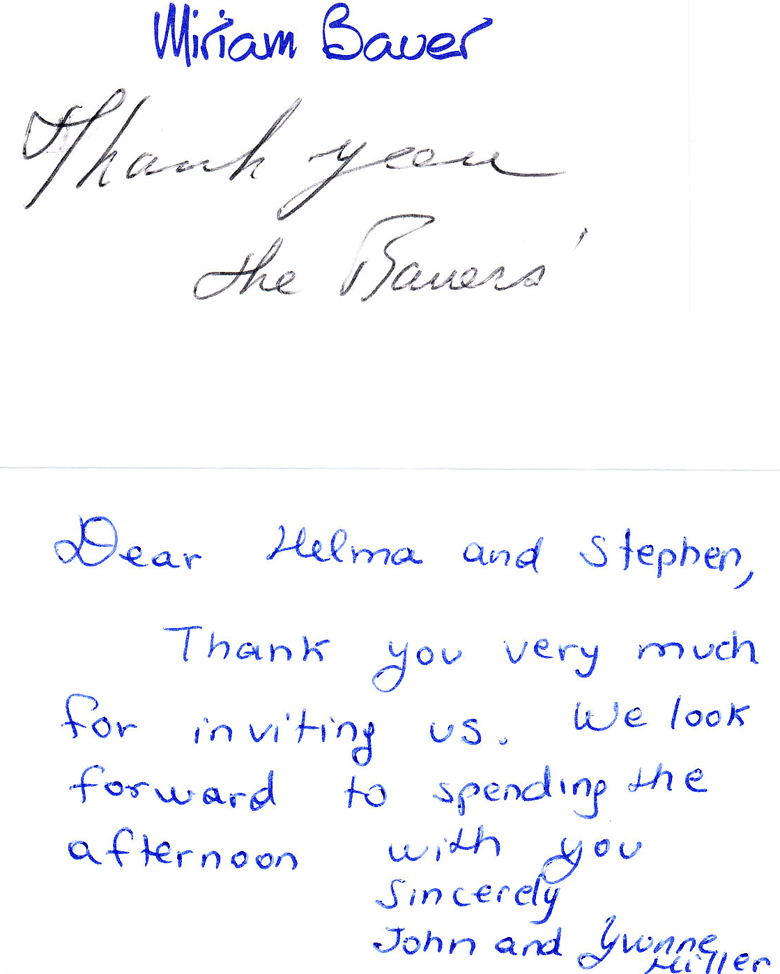 Miriam Bauer
Thank you
the Bauers'
Dear Helma and Stephen,
Thank you very much
for inviting us. We look
forward to spending the
afternoon with you
Sincerely
John and Yvonne
Hiller